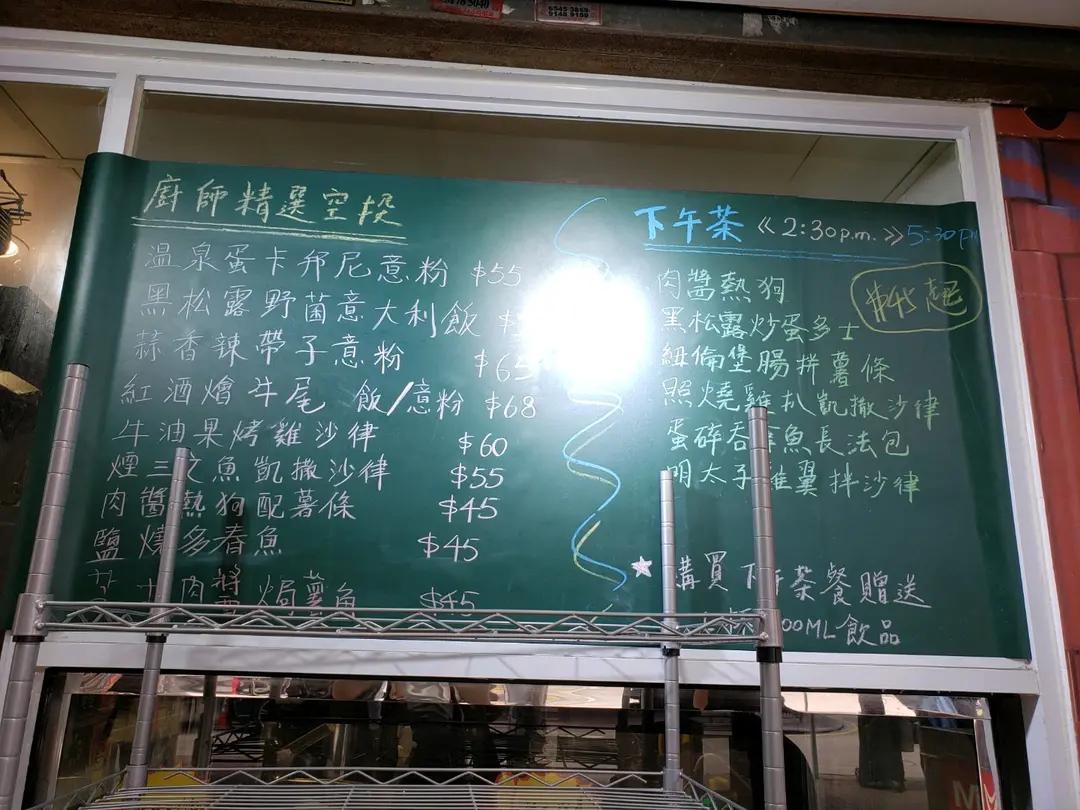 9148 9150
廚師精選空楔
溫泉蛋卡邦尼意粉 $55
黑松露野菌意大利飯
蒜香辣帶子意粉 $65
紅酒燴牛尾 飯/意粉 $68
牛油果烤雞沙律 $60
煙三文魚凱撒沙律 $55
肉醬熱狗配薯條 $45
鹽燒多春魚 $45
肉醬焗薯 $45
下午茶 《2:30p.m.》5:30p
$45起
肉醬熱狗
黑松露炒蛋多士
紐倫堡腸拼薯條
照燒雞扒凱撒沙律
蛋碎吞拿魚長法包
明太子雞翼拌沙律
購買下午茶餐贈送
00ML飲品